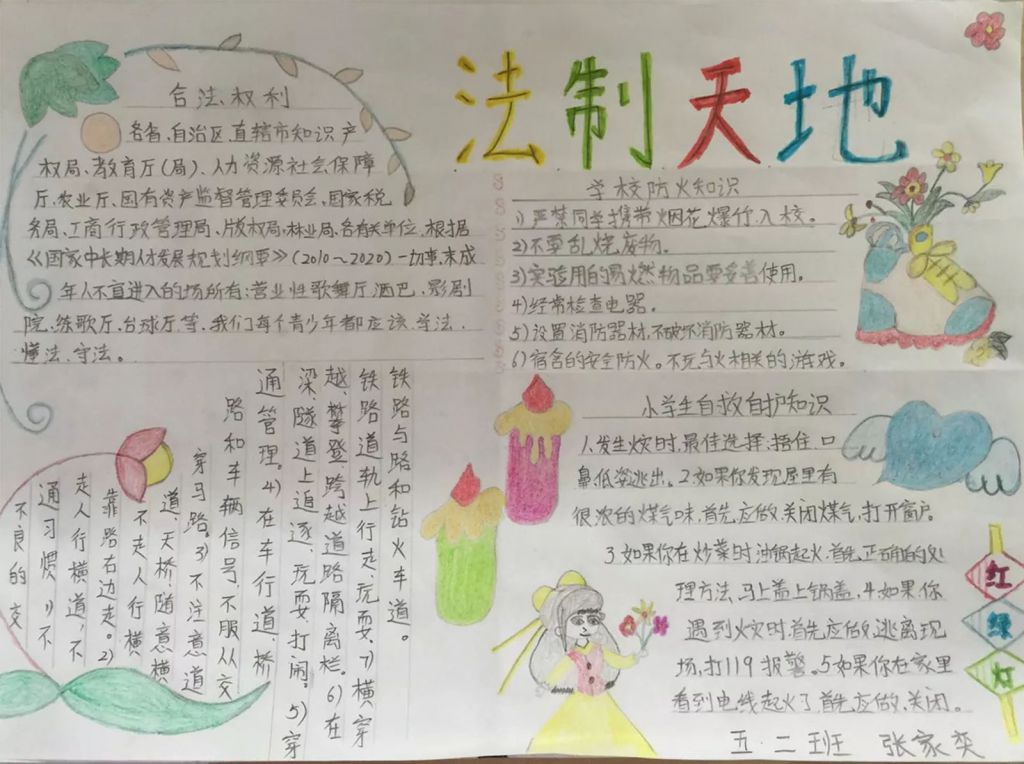 法制天地
合法权利
各省、自治区、直辖市知识产
权局、教育厅(局)、人力资源社会保障
厅、农业厅、国有资产监督管理委员会、国家税
务局、工商行政管理局、版权局、林业局、各有关单位、根据
《国家中长期人才发展规划纲要》(2010～2020)一切事,未成
年人不宜进入的场所有:营业性歌舞厅、酒巴、影剧
院、练歌厅、台球厅等,我们每个青少年都应该、学法、
懂法、守法。
学校防火知识
1)严禁同学携带烟花爆竹入校。
2)不要乱烧废物。
3)实验用的易燃物品要妥善使用。
4)经常检查电器。
5)设置消防器材,不破坏消防器材。
6)宿舍的安全防火。不玩与火相关的游戏。
小学生自救自护知识
1、发生火灾时,最佳选择:捂住口
鼻低姿逃出。2、如果你发现屋里有
很浓的煤气味,首先应做,关闭煤气,打开窗户。
3、如果你在炒菜时油锅起火,首先正确的处
理方法,马上盖上锅盖。4、如果你
遇到火灾时首先应做,逃离现
场,打119报警。5、如果你在家里
看到电线起火了,首先应做,关闭。
不良的交
通习惯 1)不
走人行横道,不
靠路右边走。2)
不走人行横
道、天桥,随意横
穿马路。3)不注意道
路和车辆信号,不服从交
通管理。4)在车行道、桥
梁、隧道上追逐、玩耍、打闹。5)穿
越、攀登、跨越道路隔离栏。6)在
铁路道轨上行走、玩耍、7)横穿
铁路与路和钻火车道。
红
绿
灯
五·二班 张家奕